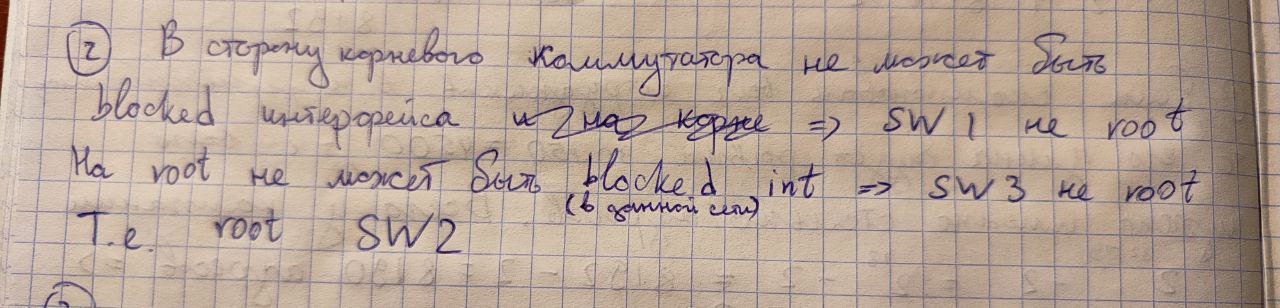 ② В сторону корневого коммутатора не может быть
blocked интерфейса и на корне => SW 1 не root
На root не может быть blocked int => SW 3 не root
(в данной сети)
Т.е. root SW2